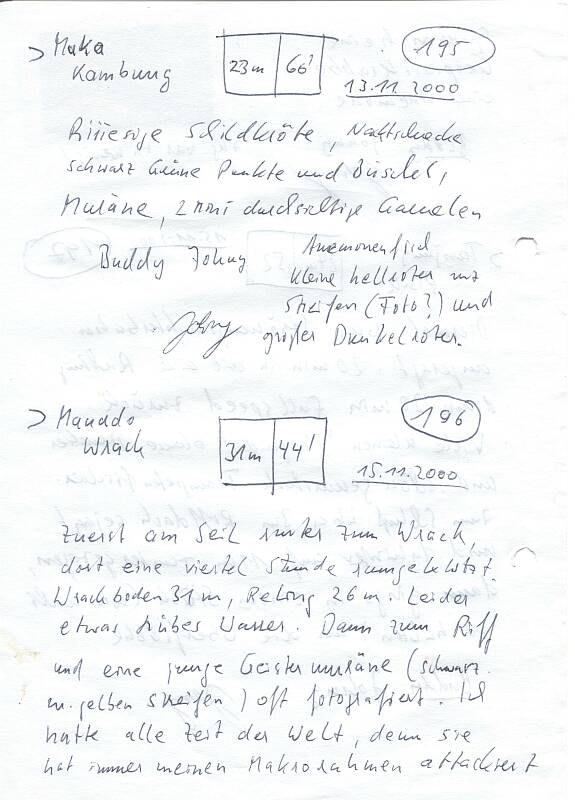 > Muka
Kambung
23m 66'
195
13.11.2000
Riiiesige Schildkröte, Nacktschnecke
schwarz Grüne Punkte und Büschel,
Muräne, 2 mini durchsichtige Garnelen
Buddy Johny
Anemonenfisch
kleine hellroter mit
Streifen (Foto?) und
großer Dunkelroter.
Johny
> Manado
Wrack
31m 44'
196
15.11.2000
Zuerst am Seil runter zum Wrack,
dort eine viertel Stunde rumgeklotzt.
Wrackboden 31m, Reling 26m. Leider
etwas trübes Wasser. Dann zum Riff
und eine junge Geistermuräne (schwarz
m. gelben Streifen) oft fotografiert. Ich
hatte alle Zeit der Welt, denn sie
hat immer meinen Makrorahmen attackiert